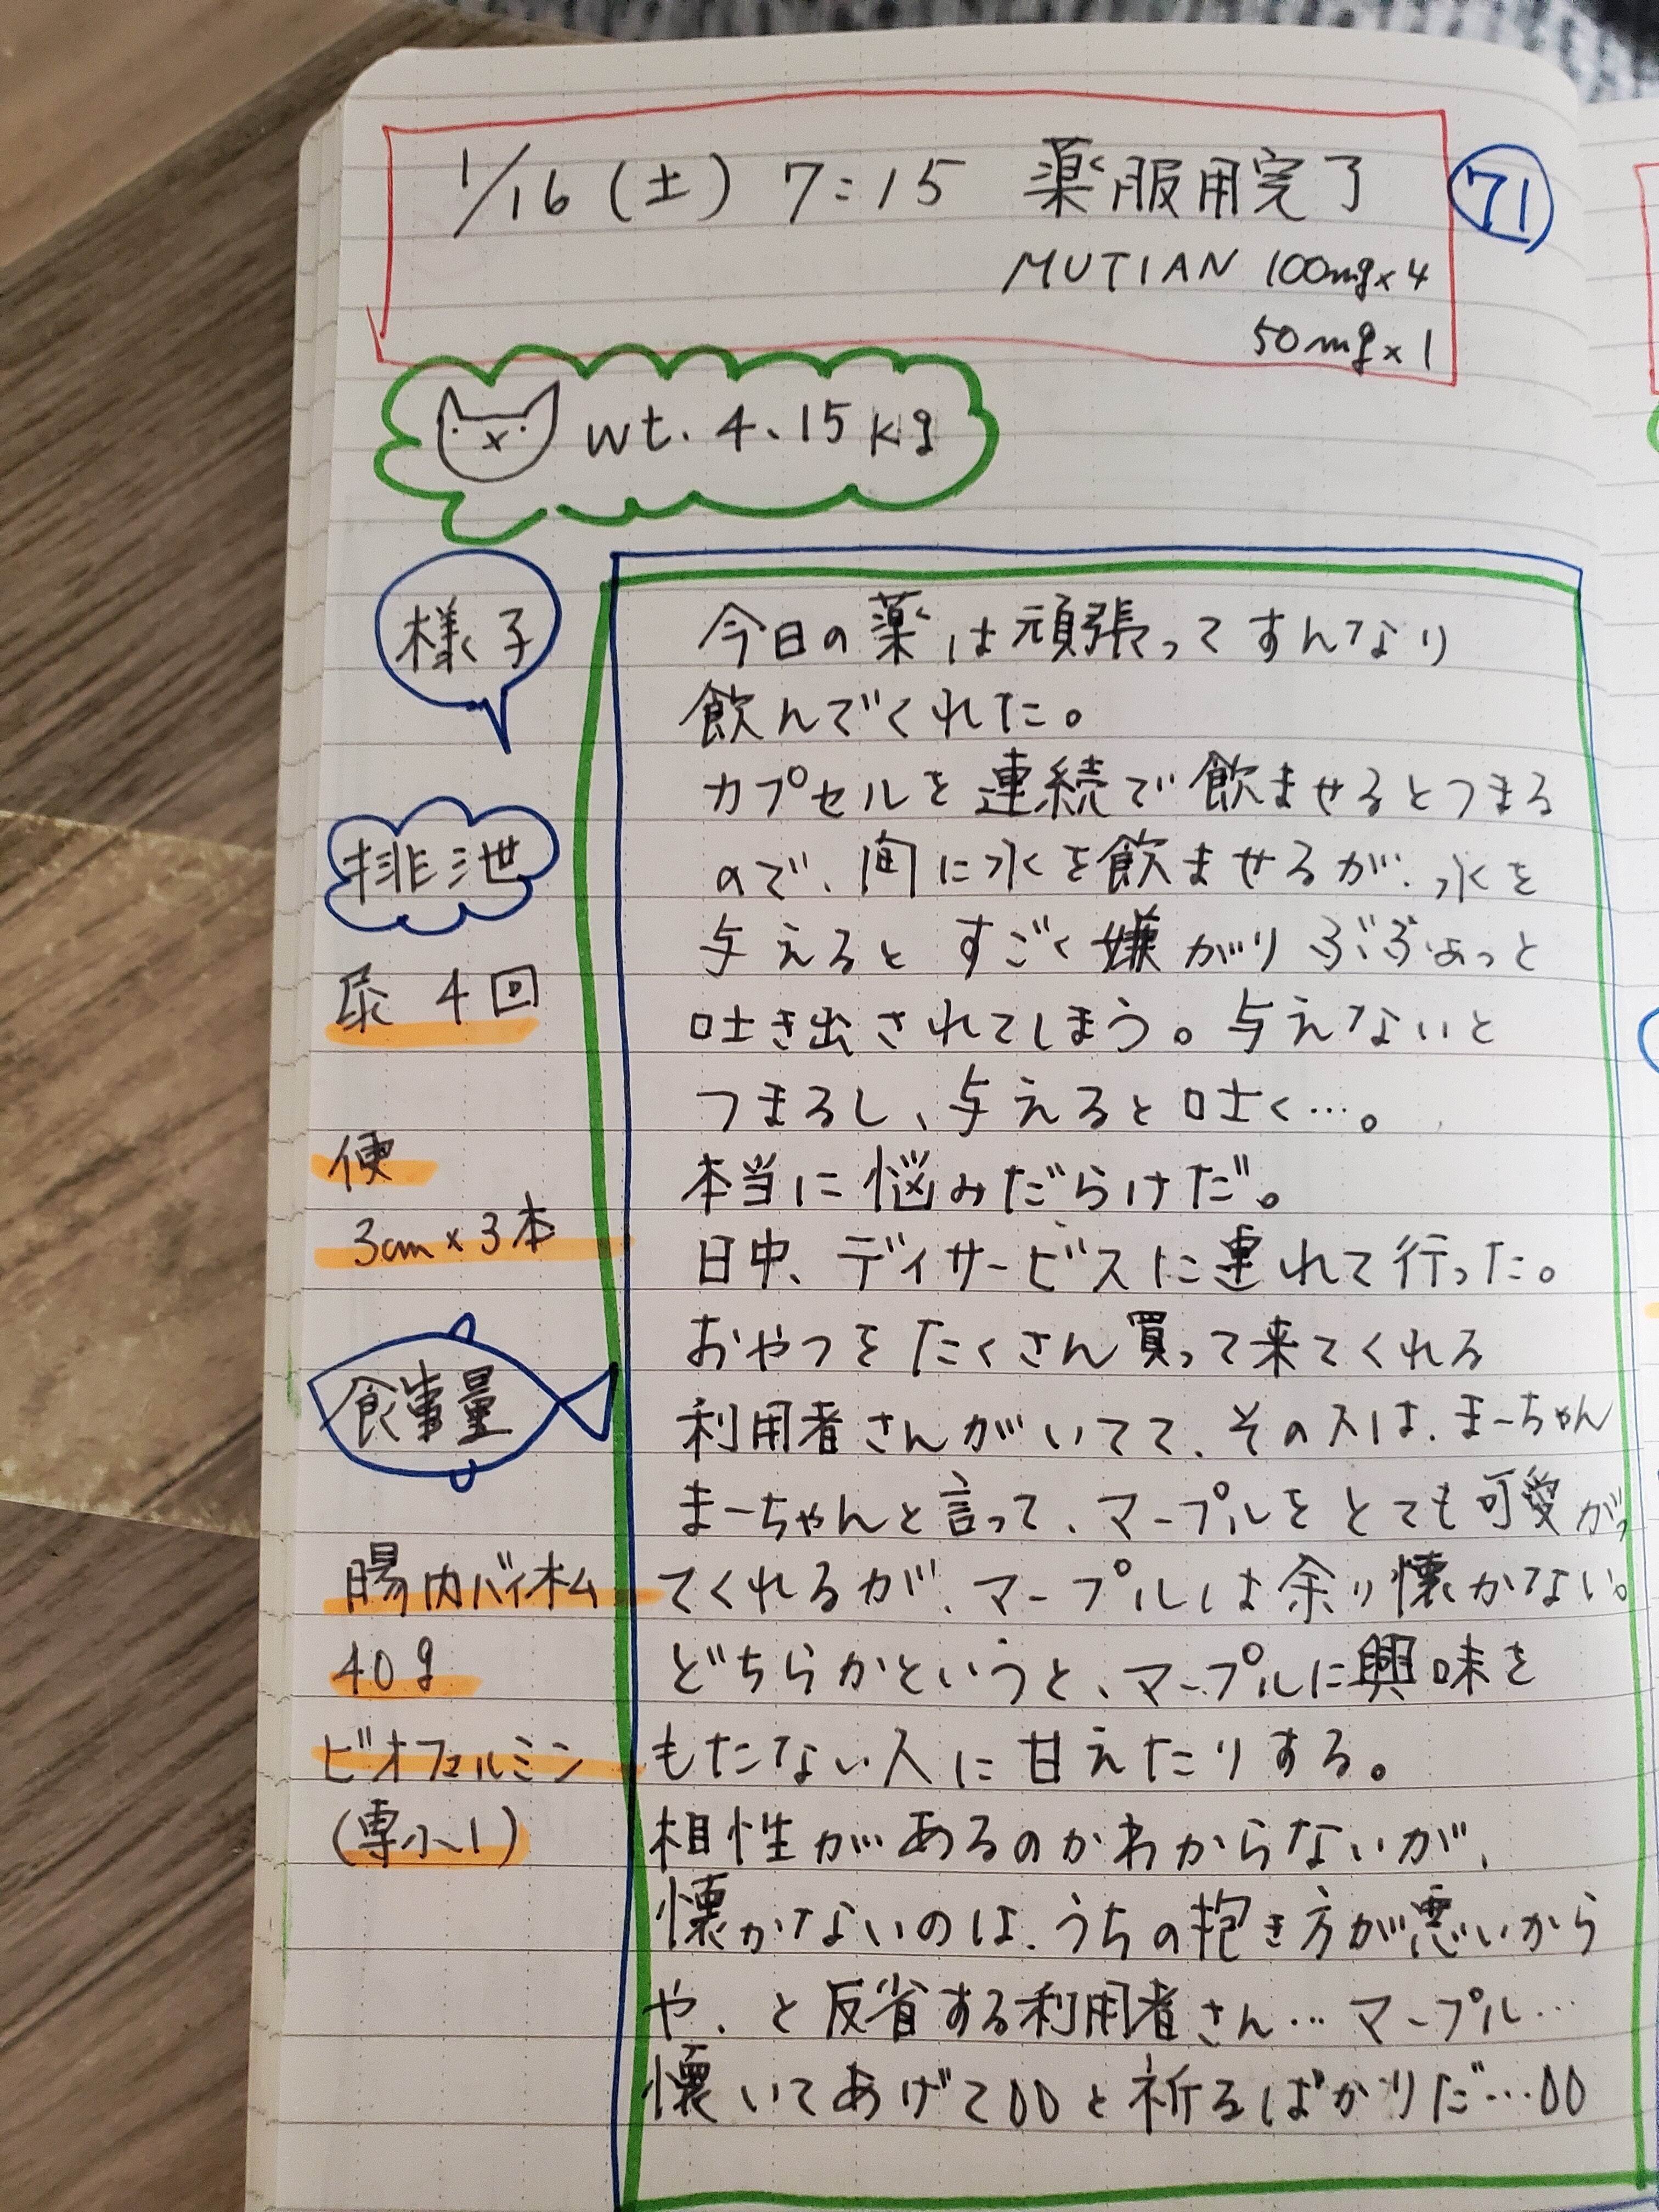 1/16(土) 7:15 薬服用完了
71
MUTIAN 100mg×4
50mg×1
wt. 4.15kg
様子
排泄
尿 4回
便
3cm×3本
食事量
腸内バイオム
40g
ビオフェルミン
(専小1)
今日の薬は頑張ってすんなり
飲んでくれた。
カプセルを連続で飲ませるとつまる
ので、間に水を飲ませるが、水を
与えるとすごく嫌がりぶぶぶぁっと
吐き出されてしまう。与えないと
つまるし、与えると吐く…。
本当に悩みだらけだ。
日中、デイサービスに連れて行った。
おやつをたくさん買って来てくれる
利用者さんがいてて、その人は、まーちゃん
まーちゃんと言って、マープルをとても可愛がっ
てくれるが、マープルは余り懐かない。
どちらかというと、マープルに興味を
もたない人に甘えたりする。
相性があるのかわからないが、
懐かないのは、うちの抱き方が悪いから
や、と反省する利用者さん…マープル…
懐いてあげてと祈るばかりだ…